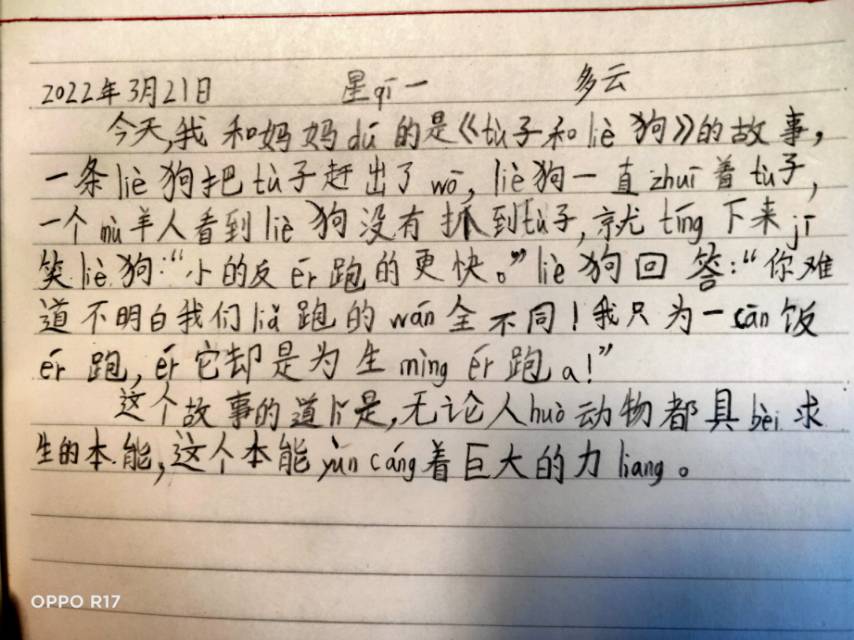 2022年3月21日 星qī一 多云
今天,我和妈妈dú的是《tù子和liè狗》的故事,
一条liè狗把tù子赶出了wō,liè狗一直zhuī着tù子,
一个mù羊人看到liè狗没有抓到tù子,就tíng下来jī
笑liè狗:“小的反ér跑的更快。”liè狗回答:“你难
道不明白我们liǎ跑的wán全不同!我只为一cān饭
ér跑,ér它却是为生mìng ér跑a!”
这个故事的道lǐ是,无论人huò动物都具bèi求
生的本能,这个本能yùn cáng着巨大的力liang。
OPPO R17